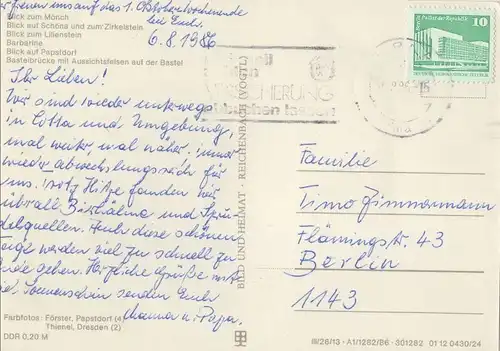 freuen uns auf das 1. Oktoberwochenende
bei Euch.
6.8.1986
Blick zum Mönch
Blick auf Schöna und zum Zirkelstein
Blick zum Lilienstein
Barbarine
Blick auf Papstdorf
Basteibrücke mit Aussichtsfelsen auf der Bastei
Ihr Lieben!
Wir sind wieder unterwegs
in Cotta und Umgebung,
mal weiter mal näher. immer
wieder abwechslungsreich für
uns. trotz Hitze fanden wir
überall Birkhähne und
quellen. Auch diese schönen
Tage werden viel zu schnell zu
Ende gehen. Herzliche Grüße mit
viel Sonnenschein senden Euch
Mama u. Papa.
Farbfotos: Förster, Papstdorf (4)
Thienel, Dresden (2)
DDR 0,20 M
BILD UND HEIMAT · REICHENBACH (VOGTL)
Palast der Republik
10
Familie
Timo Zimmermann
Flämingstr. 43
Berlin
1143
III/26/13 · A1/1282/86 · 301282 01 12 0430/24